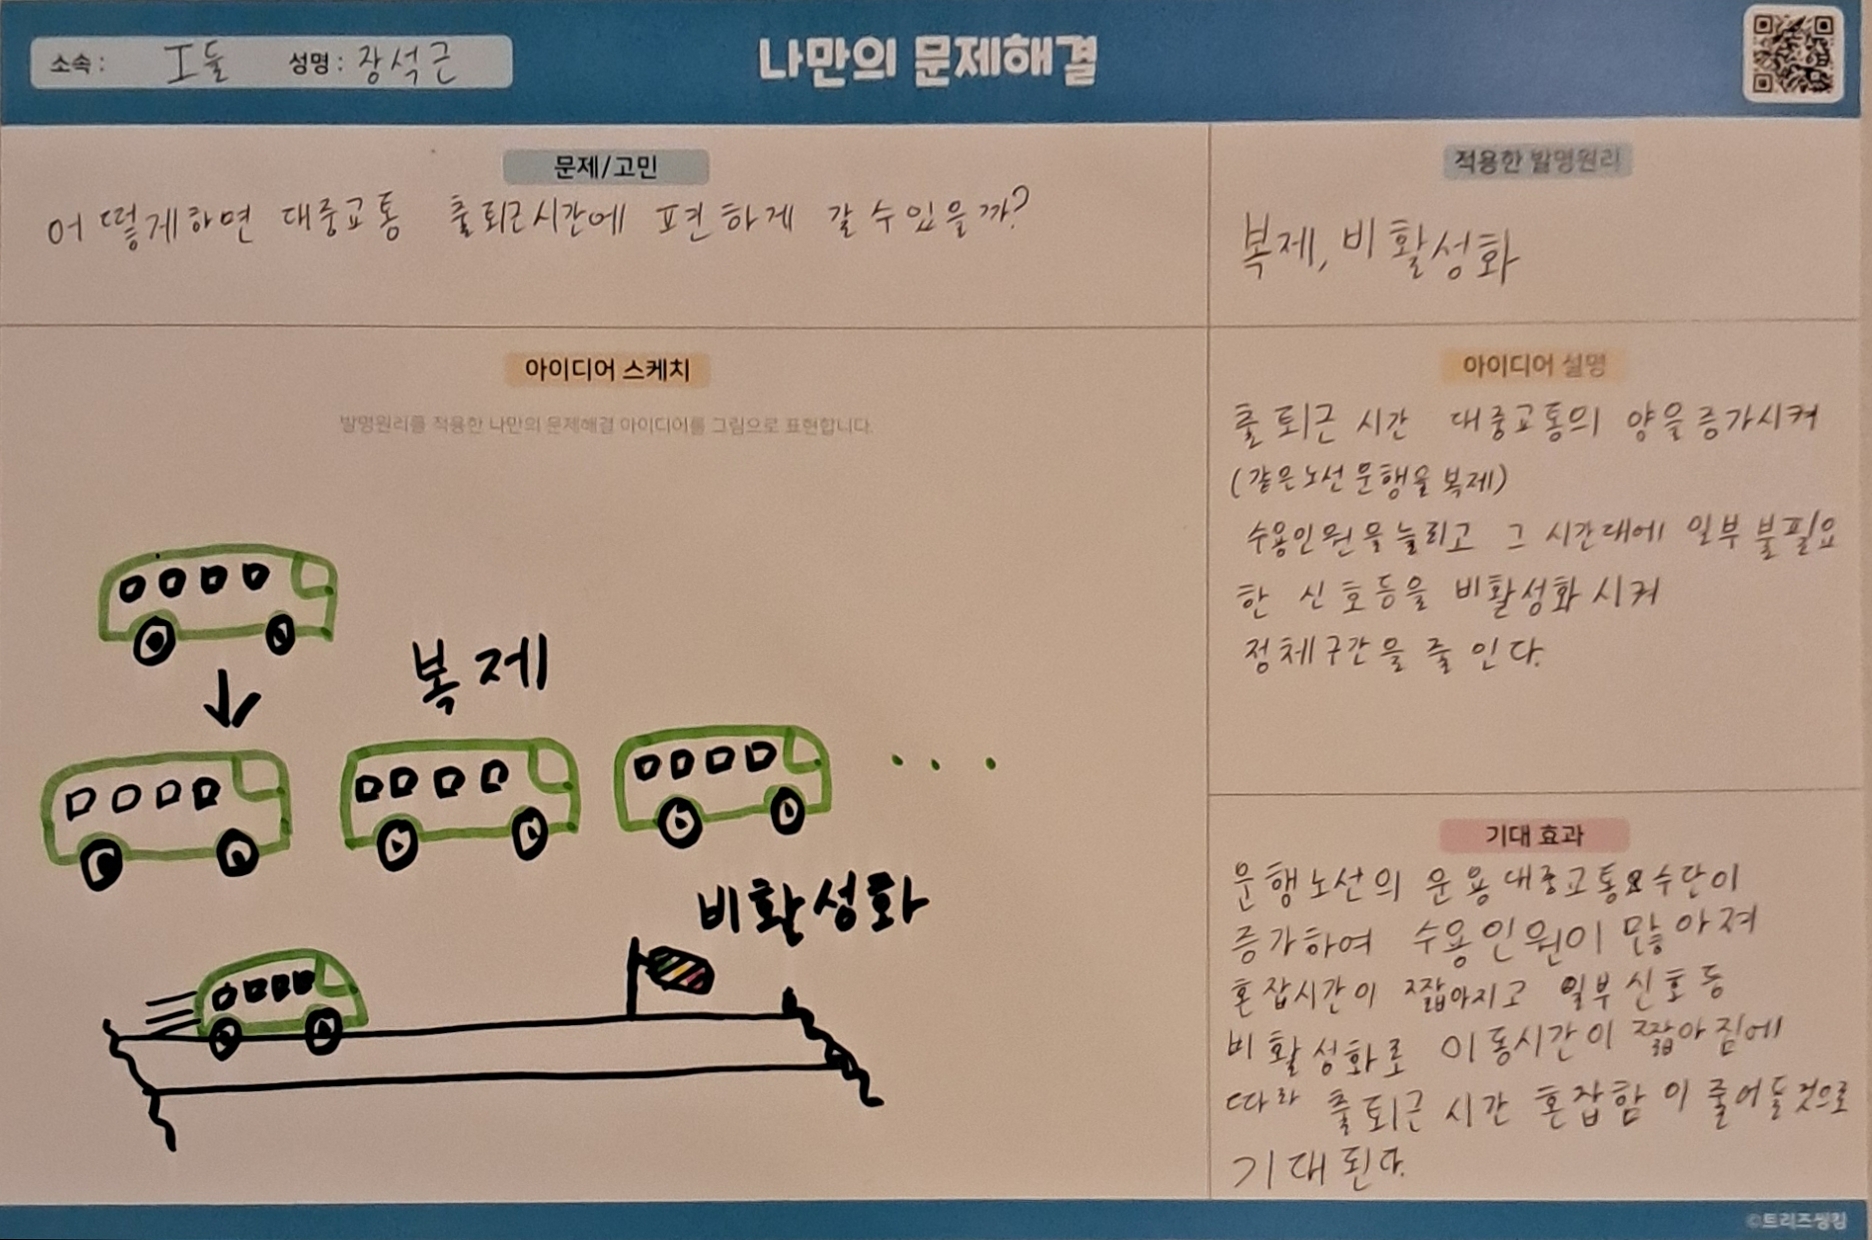 소속 : I들 성명 : 장석근
나만의 문제해결
문제/고민
어떻게하면 대중교통 출퇴근시간에 편하게 갈 수 있을까?
적용한 발명원리
복제, 비활성화
아이디어 스케치
발명원리를 적용한 나만의 문제해결 아이디어를 그림으로 표현합니다.
복제
비활성화
아이디어 설명
출퇴근 시간 대중교통의 양을 증가시켜
(같은노선 운행을 복제)
수용인원을 늘리고 그 시간대에 일부 불필요
한 신호등을 비활성화 시켜
정체구간을 줄인다.
기대 효과
운행노선의 운용 대중교통 수단이
증가하여 수용인원이 많아져
혼잡시간이 짧아지고 일부 신호등
비활성화로 이동시간이 짧아짐에
따라 출퇴근 시간 혼잡함이 줄어들것으로
기대된다.
©트리즈씽킹